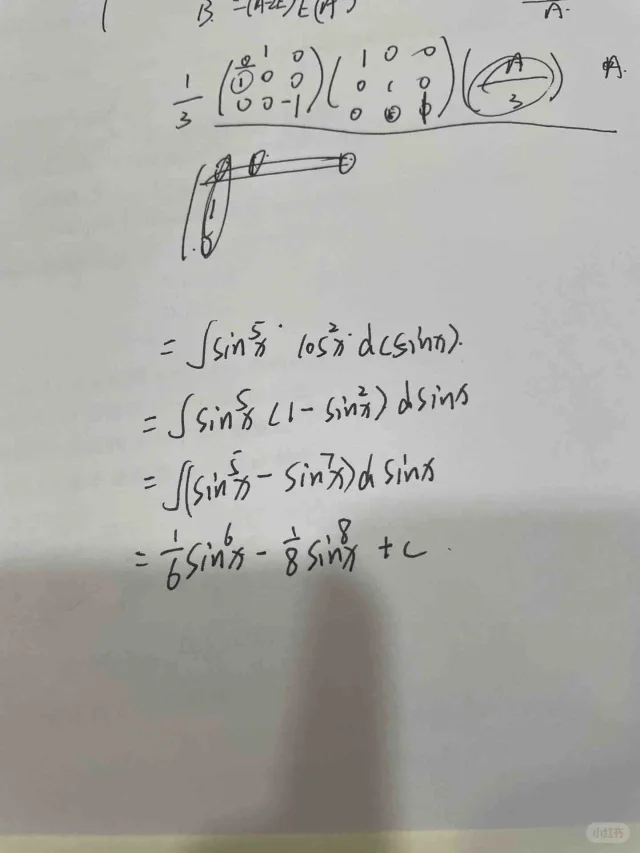 B = (A-2E)
1/3 (0 1 0 / 1 0 0 / 0 0 -1) (1 0 0 / 0 1 0 / 0 0 1) (A/3) A.
= ∫ sin⁵x · cos²x · d(sinx).
= ∫ sin⁵x (1 - sin²x) d sinx
= ∫ (sin⁵x - sin⁷x) d sinx
= 1/6 sin⁶x - 1/8 sin⁸x + c .
小红书